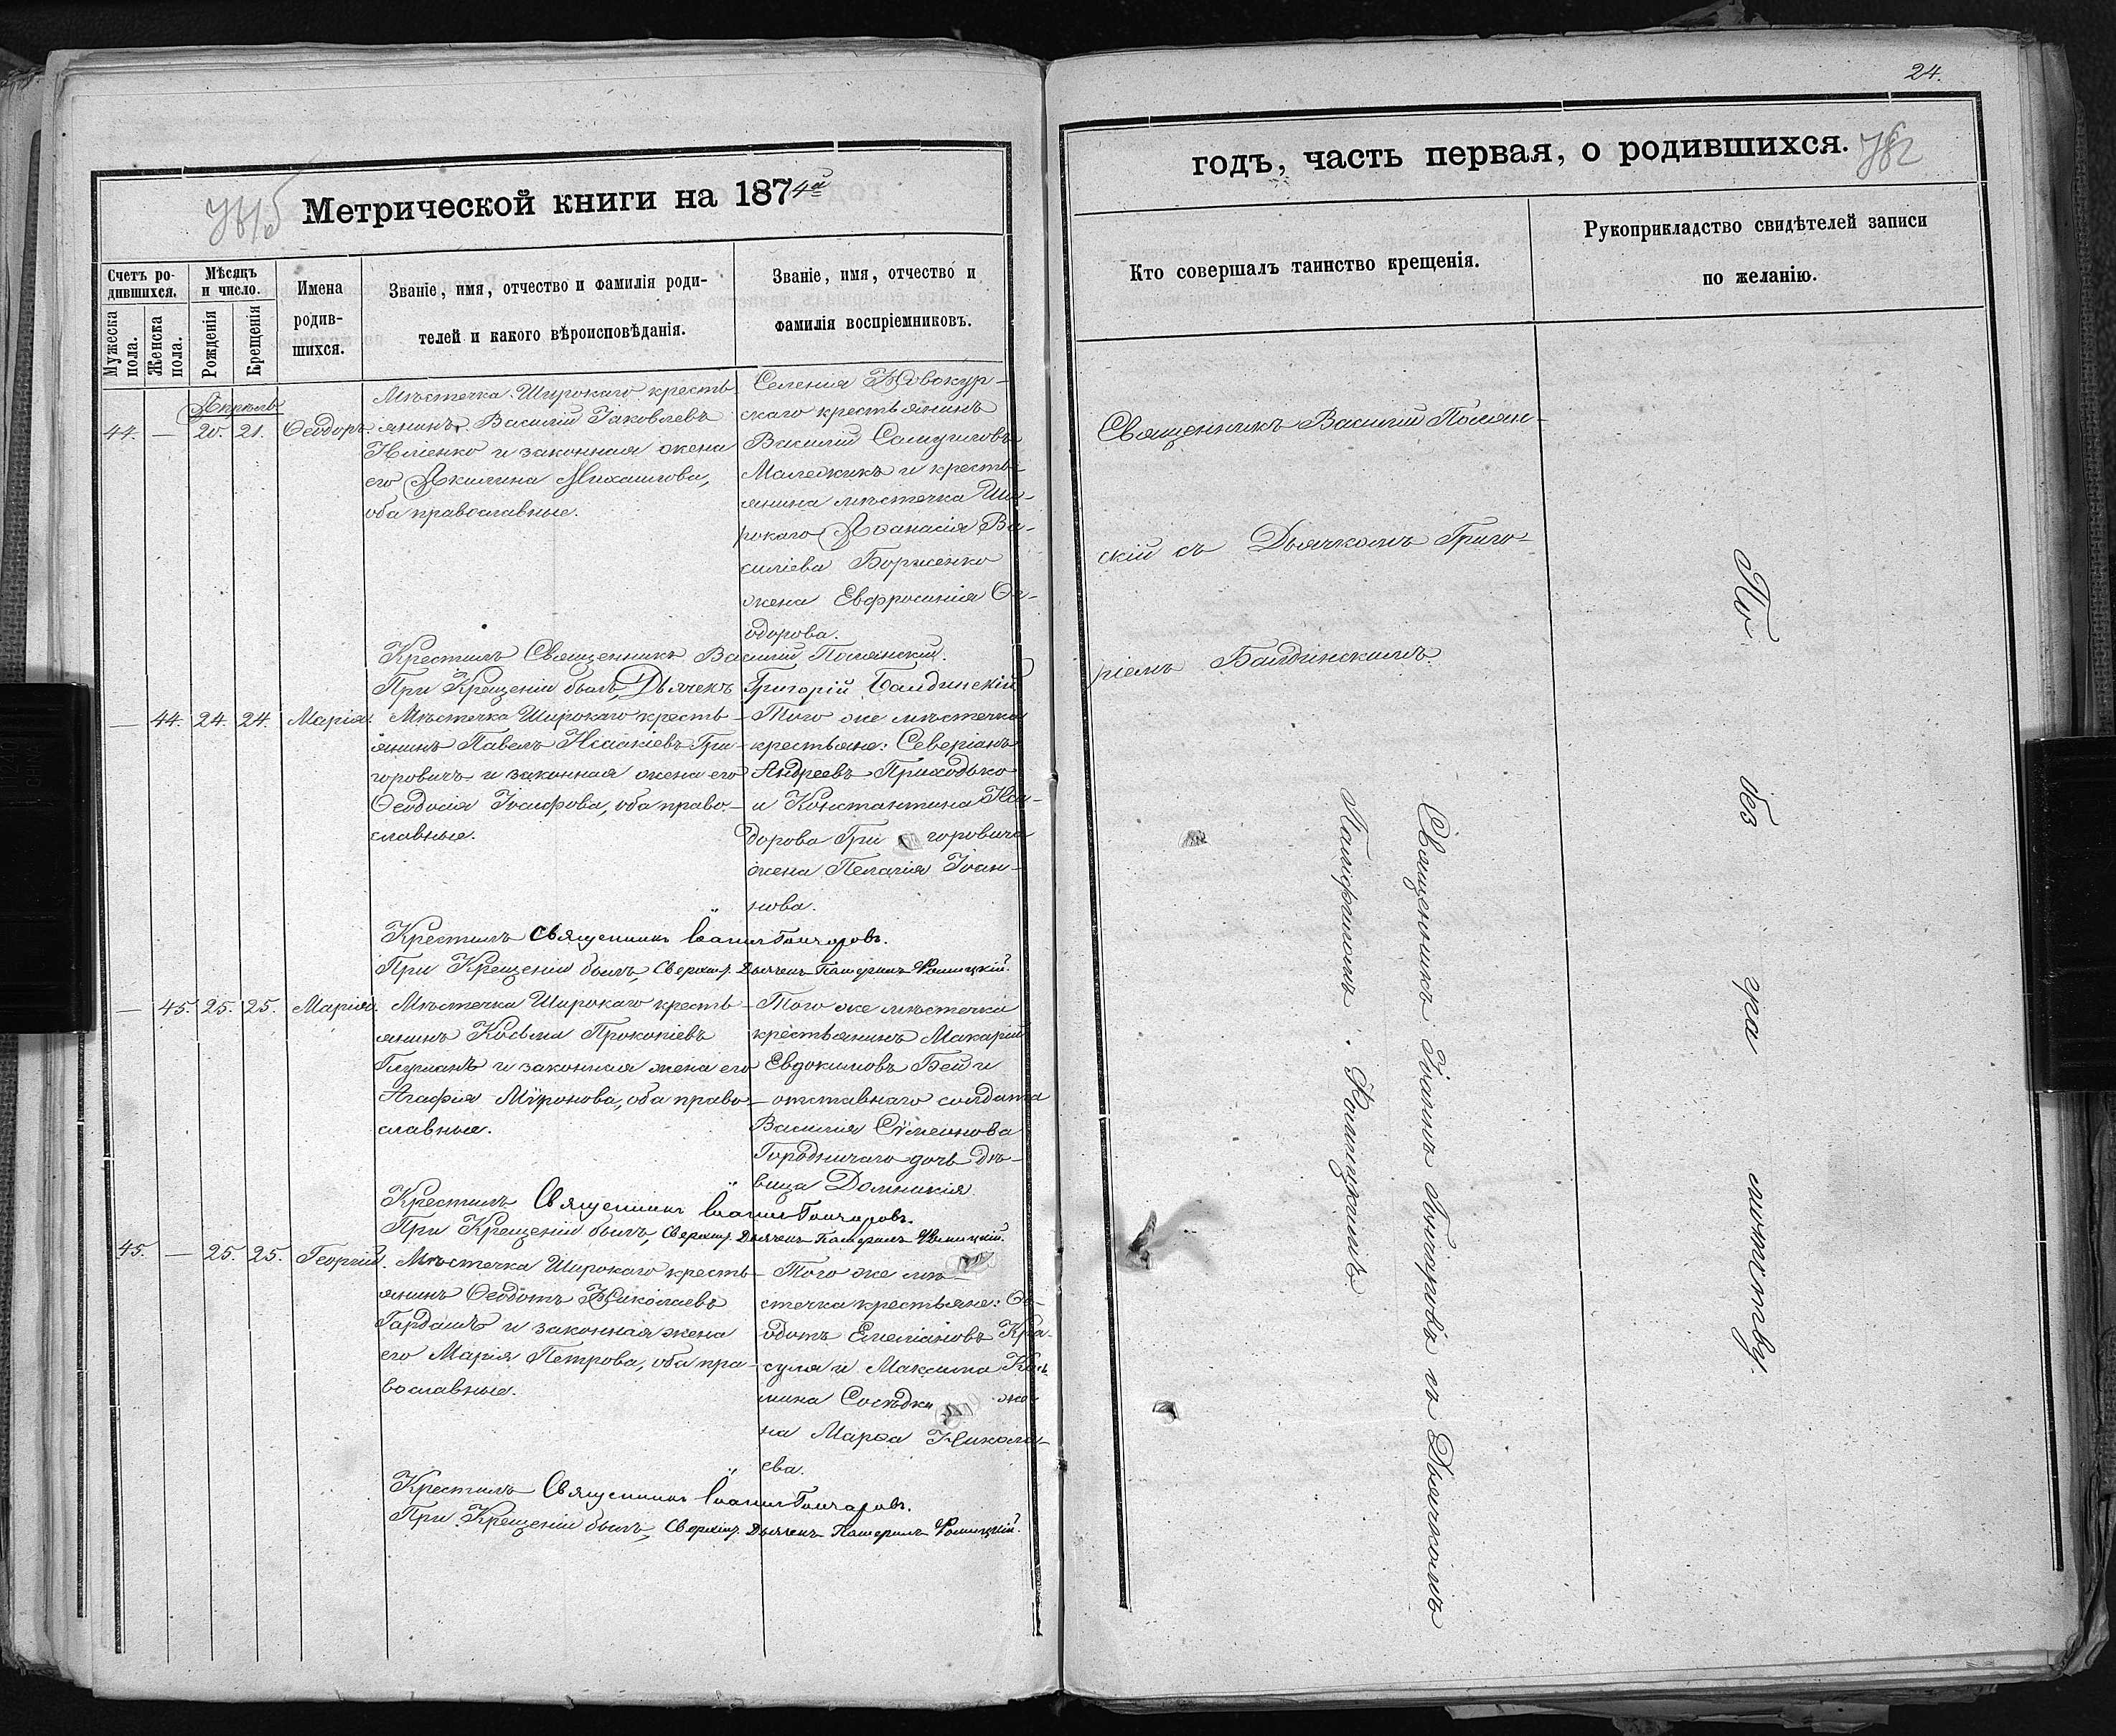 24.
Метрической книги на 1874й
Счетъ ро-
дившихся.
Мужеска
пола.
Женска
пола.
Мѣсяцъ
и число.
Рожденія
Крещенія
Имена
родив-
шихся.
Званіе, имя, отчество и фамилія роди-
телей и какого вѣроисповѣданія.
Званіе, имя, отчество и
фамилія воспріемниковъ.
Апрѣль
44. — 20. 21. Ѳеодоръ.
Мѣстечка Широкаго кресть-
янинъ Василій Іаковлевъ
и законная жена
его Акилина Михаилова,
оба православные.
Селенія Новокур-
скаго крестьянинъ
Василій Самуиловъ
Малежикъ и кресть-
янина мѣстечка Ши-
рокаго Аѳанасія Ва-
силіева Борисенко
жена Евфросинія Ѳе-
одорова.
Крестилъ Священникъ Василій Полянскій.
При Крещеніи былъ, Дьячекъ Григорій Балдинскій
— 44. 24. 24. Марія.
Мѣстечка Широкаго кресть-
янинъ Павелъ Исаакіевъ Гри-
горовичъ и законная жена его
Ѳеодосія Іосифова, оба право-
славные.
Того же мѣстечка
крестьяне: Северіанъ
Андреевъ Приходько
и Константина Иси-
дорова Григоровича
жена Пелагія Іоан-
нова.
Крестилъ Священникъ Іоаннъ Гончаровъ.
При Крещеніи былъ, Сверхшт. Дьячекъ Памфилъ
— 45. 25. 25. Марія.
Мѣстечка Широкаго кресть-
янинъ Косьма Прокопіевъ
и законная жена его
Агафія Мѵронова, оба право-
славные.
Того же мѣстечка
крестьянинъ Макарій
Евдокимовъ Бей и
отставнаго солдата
Василія Сѵмеонова
Городничаго дочь дѣ-
вица Домникія.
Крестилъ Священникъ Іоаннъ Гончаровъ.
При Крещеніи былъ, Сверхшт. Дьячекъ Памфилъ
45. — 25. 25. Георгій.
Мѣстечка Широкаго кресть-
янинъ Ѳеодотъ Николаевъ
Гардашъ и законная жена
его Марія Петрова, оба пра-
вославные.
Того же мѣ-
стечка крестьяне: Ѳе-
одотъ Емеліановъ Кра-
суля и Максима Кось-
мина Сосѣдки же-
на Марѳа Никола-
ева.
Крестилъ Священникъ Іоаннъ Гончаровъ.
При Крещеніи былъ, Сверхшт. Дьячекъ Памфилъ
годъ, часть первая, о родившихся.
Кто совершалъ таинство крещенія.
Рукоприкладство свидѣтелей записи
по желанію.
Священникъ Василій Полян-
скій съ Дьячкомъ Григо-
ріемъ Балдинскимъ.
Священникъ Іоаннъ Гончаровъ съ Дьячкомъ
Памфиломъ
По без гра мотству.